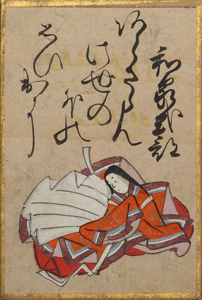 和泉式部
あらさらん
此世のほかの
おもひ